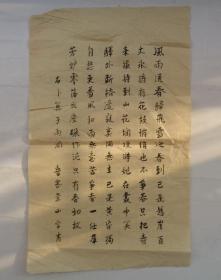 風雨送春歸飛雪迎春到已是懸崖百
丈冰猶有花枝俏俏也不爭春只把春
來報待到山花爛漫時她在叢中笑
驛外斷橋邊寂寞開無主已是黃昏獨
自愁更著風和雨無意苦爭春一任群
芳妒零落成泥碾作塵只有香如故
右卜算子兩首